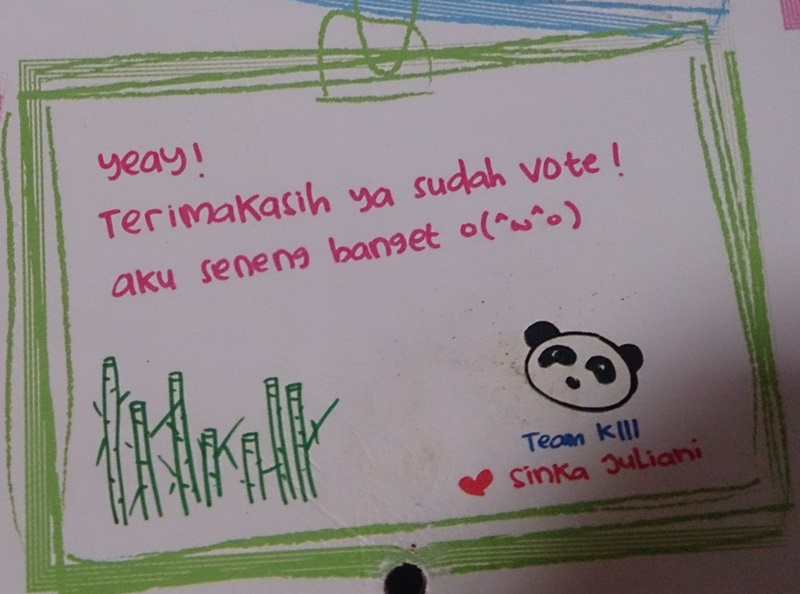 yeay!
Terimakasih ya sudah vote!
aku seneng banget o(^ω^o)
Team KIII
Sinka Juliani